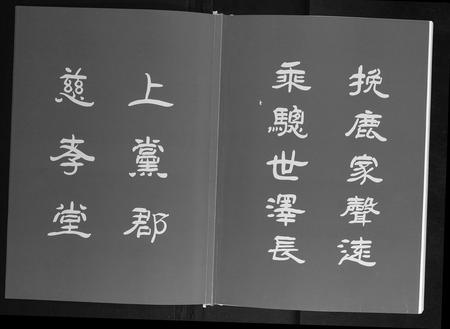 挽鹿家聲遠
乘驄世澤長
上黨郡
慈孝堂